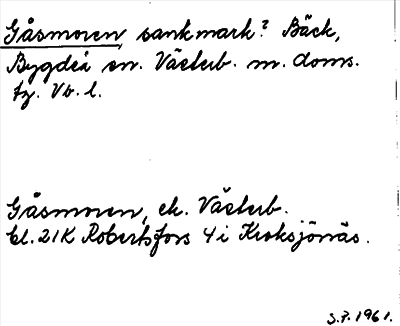 Gåsmoren, sankmark? Bäck,
Bygdeå sn. Västerb. m. doms.
tg. Vb. l.
Gåsmoren, ek. Västerb.
bl. 21K Robertsfors 4 i Kroksjönäs.
S.P. 1961.